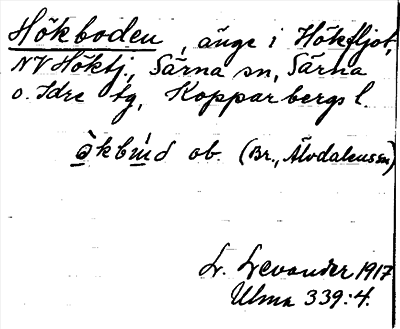 Hökboden, änge i Hökfljot,
NV Höktj., Särna sn, Särna
o. Idre tg, Kopparbergs l.
ob. (Br., Älvdalens sn)
L. Levander 1917
Ulma 339:4.